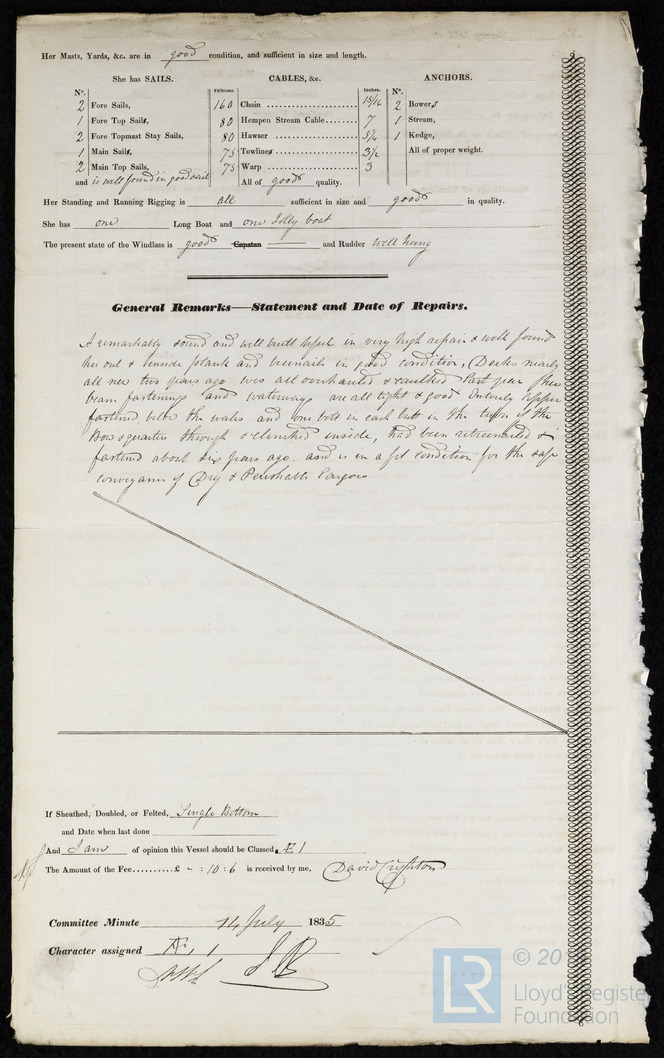 Her Masts, Yards, &c. are in good condition, and sufficient in size and length.
She has SAILS. CABLES, &c. ANCHORS.
N°. Fathoms. Inches. N°.
2 Fore Sails, 160 Chain 15/16 2 Bowers
1 Fore Top Sails, 80 Hempen Stream Cable 7 1 Stream,
2 Fore Topmast Stay Sails, 80 Hawser 5 1/2 1 Kedge,
1 Main Sails, 75 Towlines 3 1/2 All of proper weight.
2 Main Top Sails, 75 Warp 3
and is well found in good sail All of good quality.
Her Standing and Running Rigging is all sufficient in size and good in quality.
She has one Long Boat and one Jolly boat
The present state of the Windlass is good Capstan and Rudder well hung
General Remarks—Statement and Date of Repairs.
A remarkably sound and well built Vessel in very high repair & well found
her out & inside plank and treenails in good condition, Decks nearly
all new two years ago was all overhauled & caulked last year her
beam fastenings and waterways are all tight & good Entirely copper
fastened below the wales and one bolt in each butt in the of the
Bow & quarter through & clenched inside, had been retreenailed &
fastend about six years ago. and is in a fit condition for the safe
conveyance of Dry & Perishable Cargoes
If Sheathed, Doubled, or Felted, Single Bottom
and Date when last done
And I am of opinion this Vessel should be Classed Æ 1
The Amount of the Fee..........£ - : 10 : 6 is received by me, David Crighton
Committee Minute 14 July 1835
Character assigned Æ, 1
LR
Lloyd's Register
Foundation